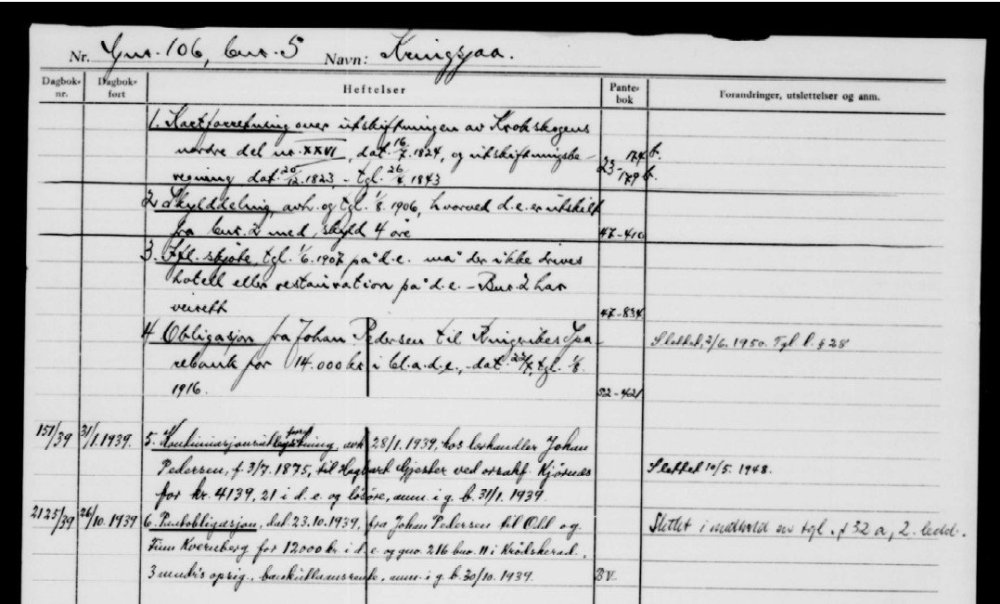 Nr. Gnr. 106, bnr. 5 Navn: Kringsjaa.
Dagbok- nr. Dagbok- ført Heftelser Pante- bok Forandringer, utslettelser og anm.
1. Kartforretning over utskiftningen av Krokskogens
nordre del nr. XXVI, dat. 16/7.1824, og utskiftningsbe-
regning dat. 20/12.1823, - tgl. 26/4.1843 23-174 b. 179 b.
2. Skylddeling, avh. og tgl. 1/8.1906, hvorved d.e. er utskilt
fra bnr. 2 med skyld 4 øre 47-410
3. Ifl. skjøte, tgl. 1/6.1907 på d.e. må der ikke drives
hotell eller restauration på d.e. - Bnr. 2 har
veirett 47-834
4 Obligasjon fra Johan Pedersen til Ringerikes Spa- Slettet, 2/6.1950. Tgl. l. § 28
rebank for 14.000 kr. i bl.a. d.e., dat. tgl. 1/8.
1916. 52-421
151/39 31/1.1939. 5. avh. 28/1.1939, hos lærhandler Johan
Pedersen, f. 3/7.1875, til ved orsakf. Kjørnæs Slettet 10/5.1948.
for kr. 4139,21 i d.e. og løsøre, anm. i g.b. 31/1.1939.
2125/39 26/10.1939 6. Pantobligasjon, dat. 23.10.1939, fra Johan Pedersen til Odd og Slettet i medhold av tgl. § 32 a, 2. ledd.
Finn Kverneberg for 12000 kr. i d.e. og gnr. 216 bnr. 11 i Krødsherad,
3 mndrs opsig., anm. i g.b. 30/10.1939. BV.